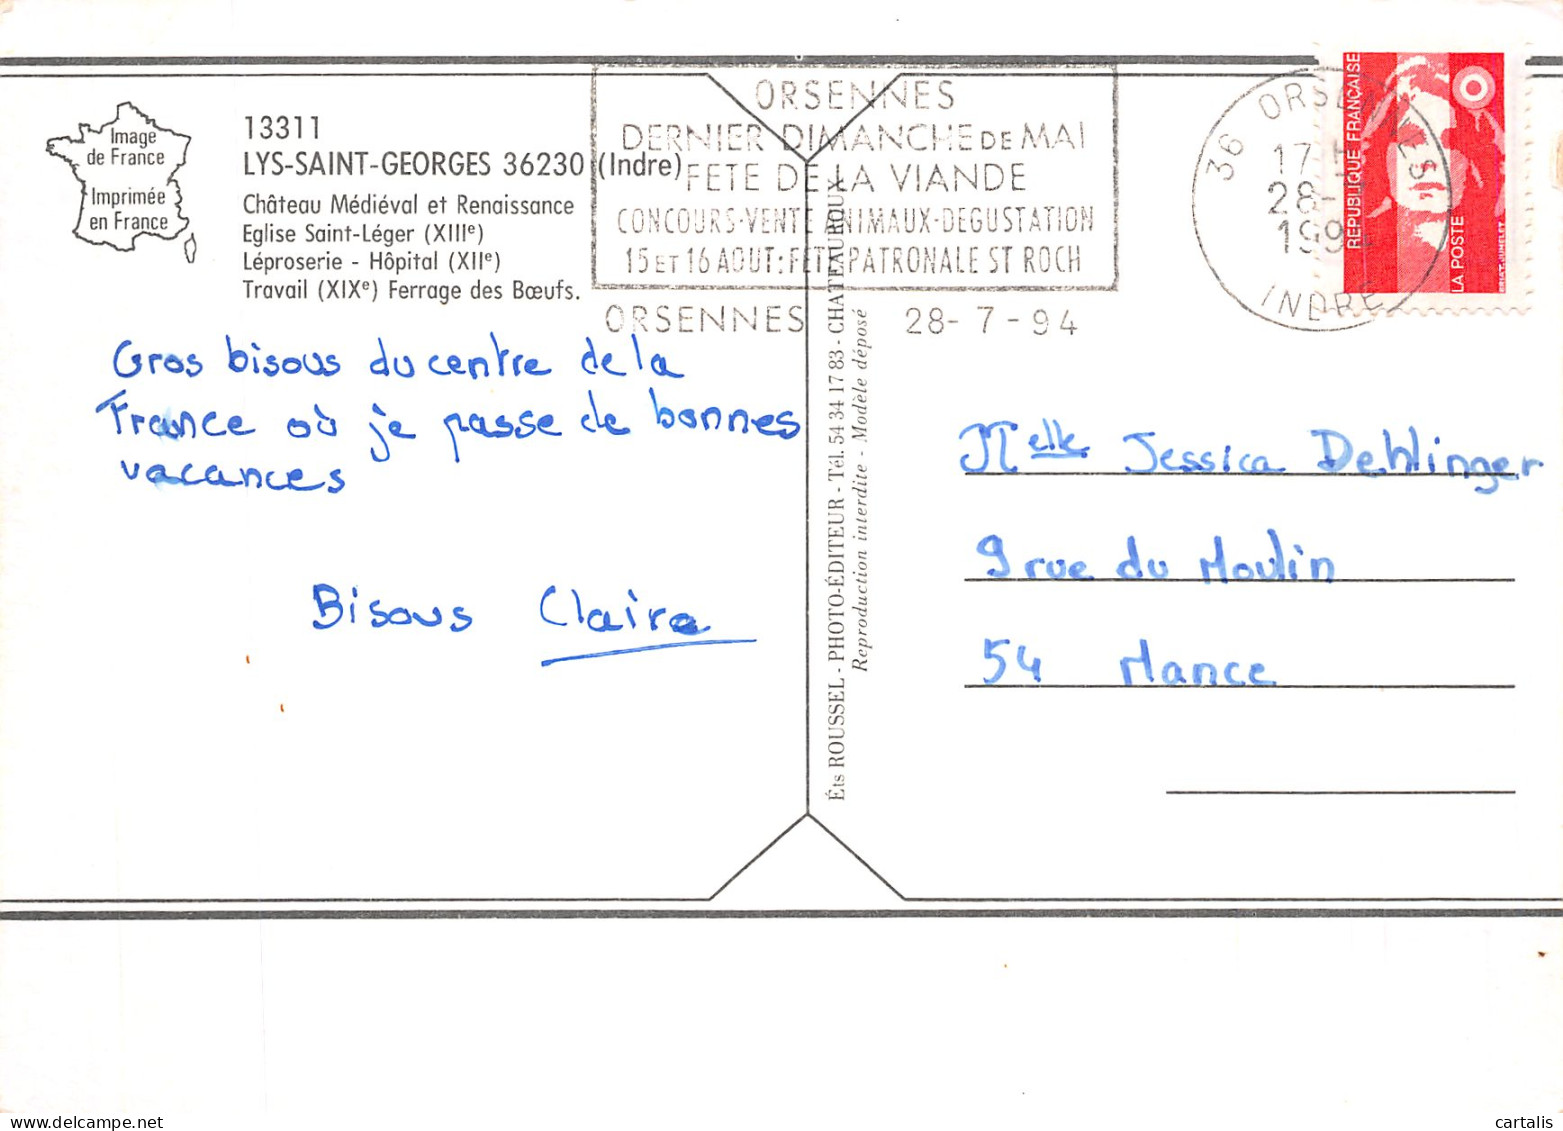 Image
de France
Imprimée
en France
13311
LYS-SAINT-GEORGES 36230 (Indre)
Château Médiéval et Renaissance
Eglise Saint-Léger (XIIIe)
Léproserie - Hôpital (XIIe)
Travail (XIXe) Ferrage des Bœufs.
ORSENNES
DERNIER DIMANCHE DE MAI
FETE DE LA VIANDE
CONCOURS-VENTE ANIMAUX-DEGUSTATION
15 ET 16 AOUT: FETE PATRONALE ST ROCH
ORSENNES 28-7-94
36 ORSENNES
17 H
28-7
1994
INDRE
REPUBLIQUE FRANÇAISE
LA POSTE
Gros bisous du centre de la
France où je passe de bonnes
vacances
Bisous Claire
Éts ROUSSEL - PHOTO-ÉDITEUR - Tél. 54 34 17 83 - CHATEAUROUX
Reproduction interdite - Modèle déposé
Melle Jessica Dehlinger
9 rue du Moulin
54 Mance
cartalis